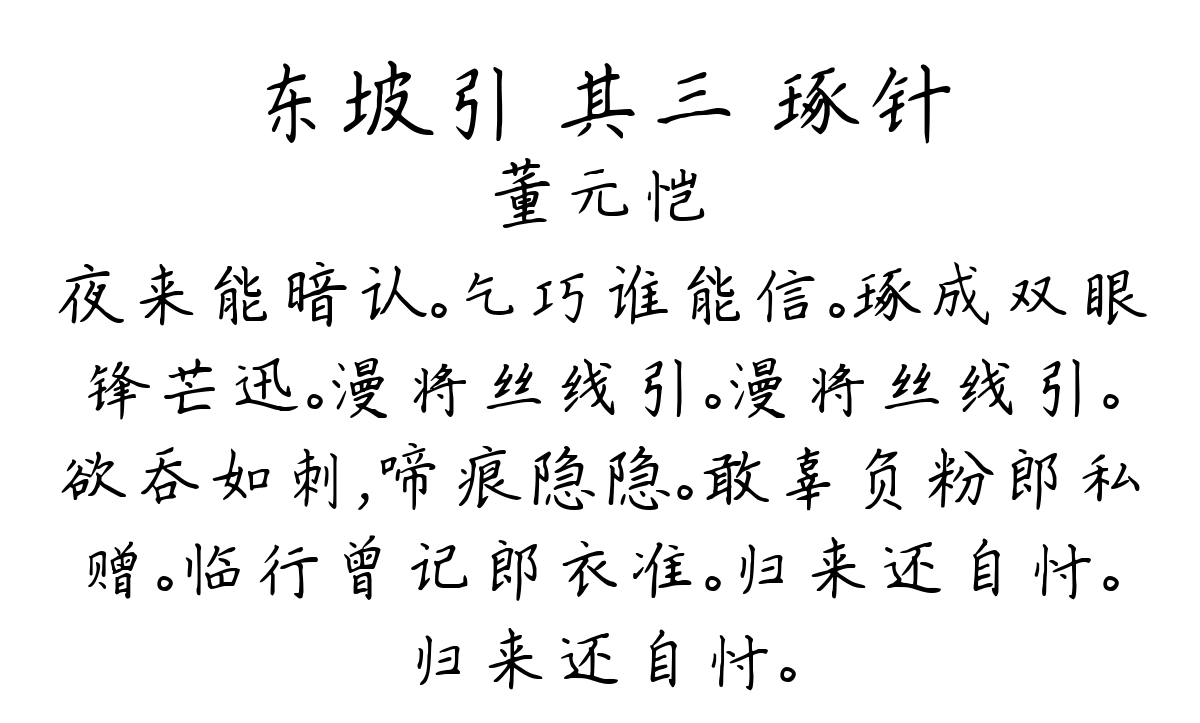 东坡引 其三 琢针
董元恺
夜来能暗认。乞巧谁能信。琢成双眼
锋芒迅。漫将丝线引。漫将丝线引。
欲吞如刺,啼痕隐隐。敢辜负粉郎私
赠。临行曾记郎衣准。归来还自忖。
归来还自忖。